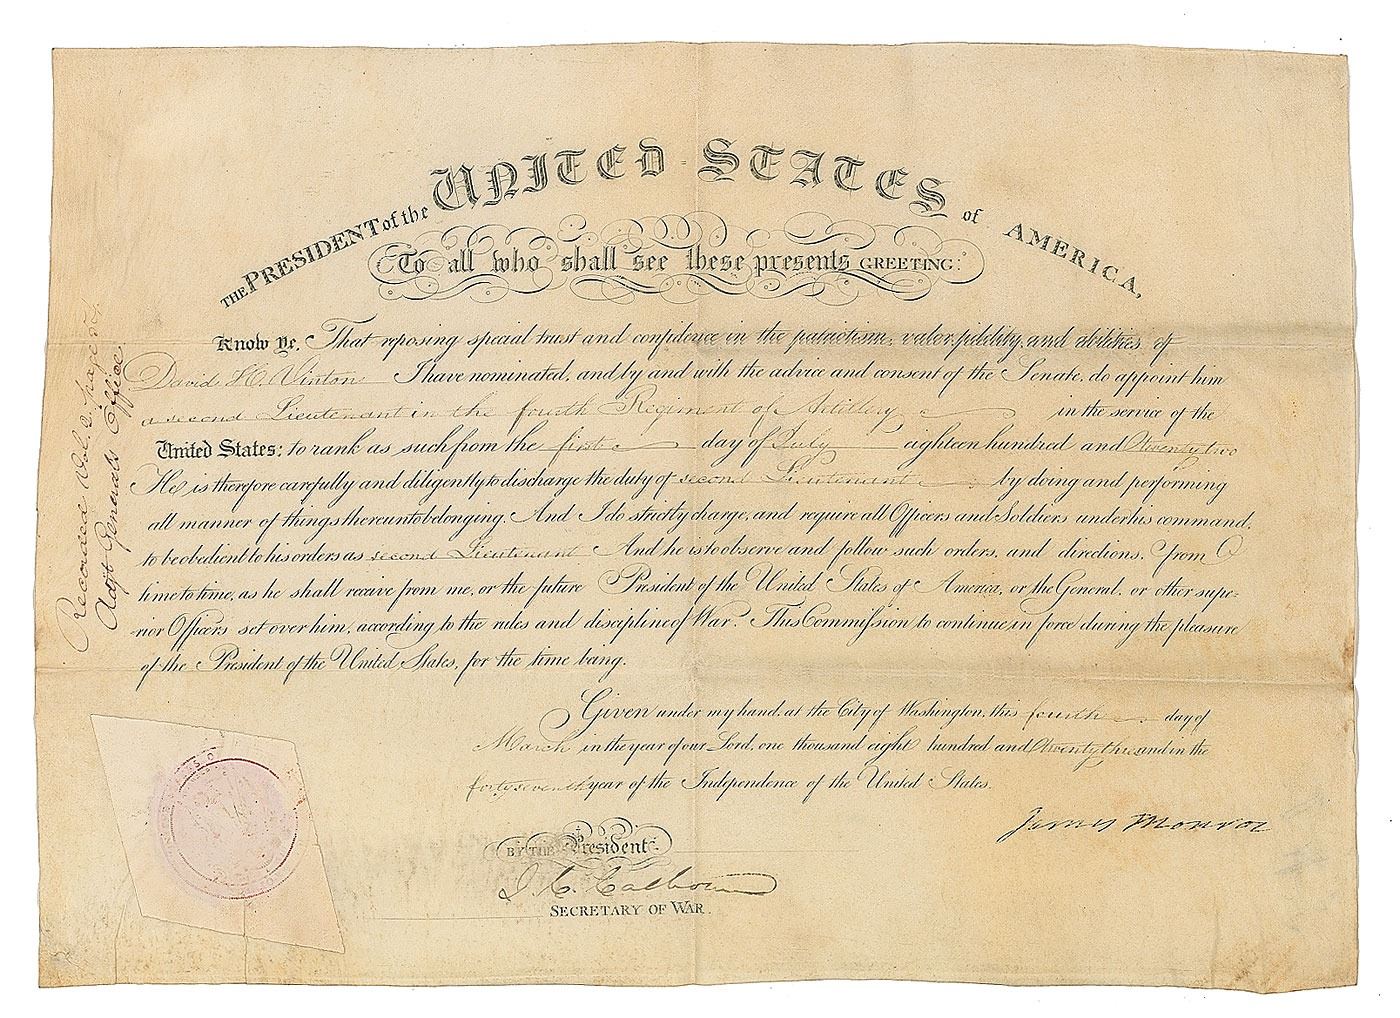 THE PRESIDENT of the UNITED STATES of AMERICA,
To all who shall see these presents GREETING:
Know Ye, That reposing special trust and confidence in the patriotism, valor, fidelity, and abilities of
David H. Vinton I have nominated, and by and with the advice and consent of the Senate, do appoint him
a second Lieutenant in the fourth Regiment of Artillery in the service of the
United States: to rank as such from the first day of July eighteen hundred and twenty two
He is therefore carefully and diligently to discharge the duty of second Lieutenant by doing and performing
all manner of things thereunto belonging. And I do strictly charge, and require all Officers and Soldiers under his command,
to be obedient to his orders as second Lieutenant And he is to observe and follow such orders, and directions, from
time to time, as he shall receive from me, or the future President of the United States of America, or the General, or other supe-
rior Officers set over him, according to the rules and discipline of War. This Commission to continue in force during the pleasure
of the President of the United States, for the time being.
Given under my hand, at the City of Washington, this fourth day of
March in the year of our Lord, one thousand eight hundred and twenty three and in the
forty seventh year of the Independence of the United States.
James Monroe
BY THE President
J. C. Calhoun
SECRETARY OF WAR.
Recorded Vol. 2. page
Adjt Generals Office